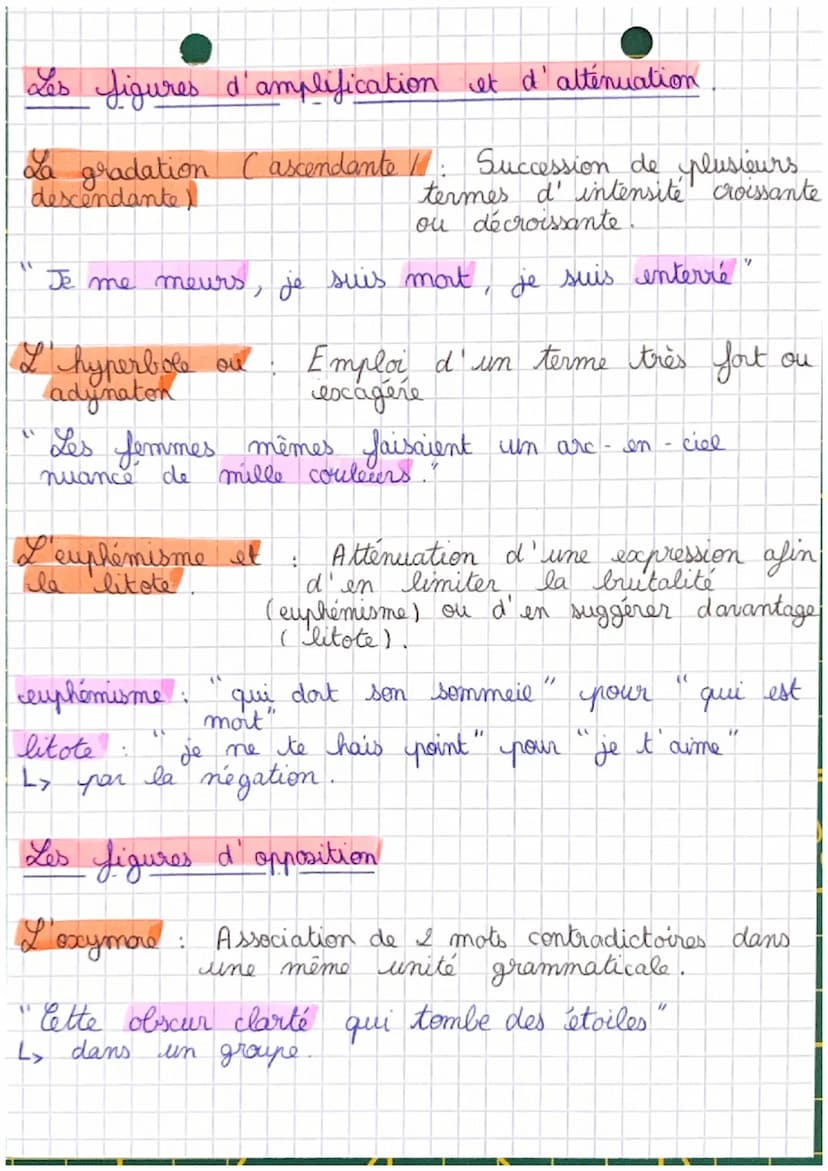 Les figures d'amplification et d'atténuation.
La gradation (ascendante / : Succession de plusieurs
descendante) termes d'intensité croissante
ou décroissante.
"Je me meurs, je suis mort, je suis enterré"
L'hyperbole ou : Emploi d'un terme très fort ou
adynaton exagérée
"Les femmes mêmes faisaient un arc-en-ciel
nuancé de mille couleurs."
L'euphémisme et : Atténuation d'une expression afin
la litote. d'en limiter la brutalité
(euphémisme) ou d'en suggérer davantage
(litote).
euphémisme : "qui dort son sommeil" pour "qui est
mort"
litote : "je ne te hais point" pour "je t'aime"
↳ par la négation.
Les figures d'opposition
L'oxymore : Association de 2 mots contradictoires dans
une même unité grammaticale.
"Cette obscur clarté qui tombe des étoiles"
↳ dans un groupe.